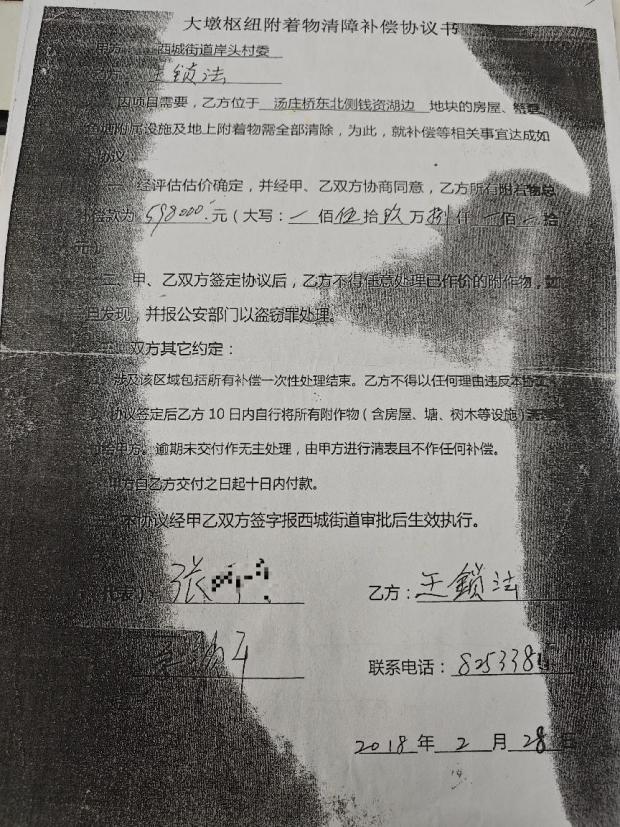 大墩枢纽附着物清障补偿协议书
甲方： 西城街道岸头村委
乙方： 王鎖法
因项目需要，乙方位于 汤庄桥东北侧钱资湖边 地块的房屋、
附属设施及地上附着物需全部清除，为此，就补偿等相关事宜达成如
协议
一、经评估估价确定，并经甲、乙双方协商同意，乙方所有附着物总
补偿款为 598000 元（大写： 佰伍拾玖万捌仟 佰 拾
元）
二、甲、乙双方签定协议后，乙方不得任意处理已作价的附作物，如
且发现，并报公安部门以盗窃罪处理。
三、双方其它约定：
涉及该区域包括所有补偿一次性处理结束。乙方不得以任何理由违反本协
协议签定后乙方 10 日内自行将所有附作物（含房屋、塘、树木等设施）
给甲方。逾期未交付作无主处理，由甲方进行清表且不作任何补偿。
甲方自乙方交付之日起十日内付款。
本协议经甲乙双方签字报西城街道审批后生效执行。
代表） 张 乙方：王鎖法
联系电话：825338
2018 年 2 月 28 日